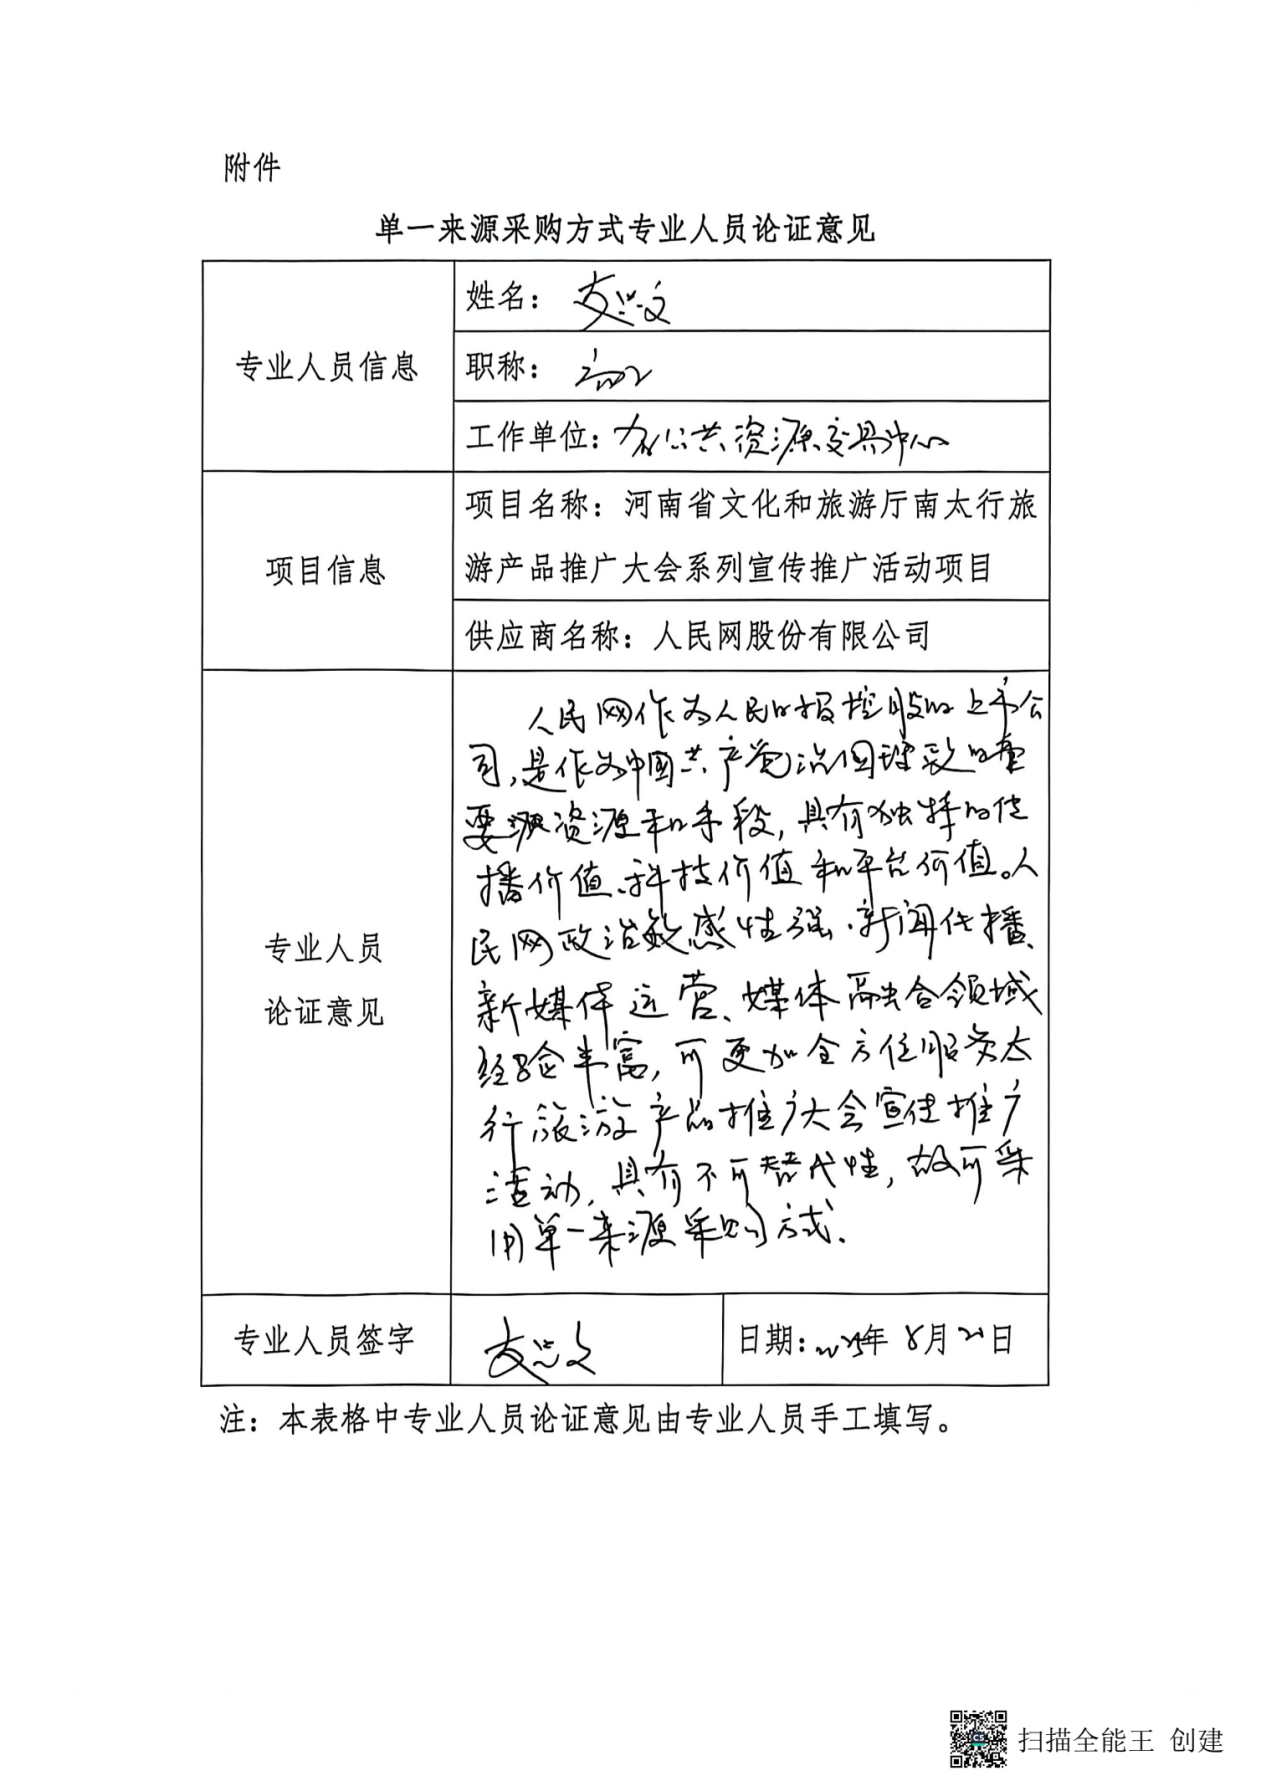 附件
单一来源采购方式专业人员论证意见
专业人员信息
姓名：
职称：高工
工作单位：省公共资源交易中心
项目信息
项目名称：河南省文化和旅游厅南太行旅
游产品推广大会系列宣传推广活动项目
供应商名称：人民网股份有限公司
专业人员
论证意见
人民网作为人民日报控股的上市公
司，是作为中国共产党治国理政的重
要资源和手段，具有独特的传
播价值、科技价值和平台价值。人
民网政治敏感性强、新闻传播、
新媒体运营、媒体融合领域
经验丰富，可更加全方位服务太
行旅游产品推广大会宣传推广
活动，具有不可替代性，故可采
用单一来源采购方式.
专业人员签字
日期：2025年8月21日
注：本表格中专业人员论证意见由专业人员手工填写。
扫描全能王 创建